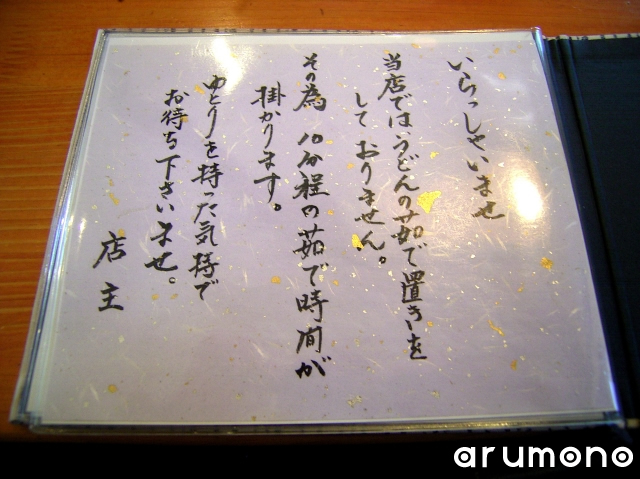 いらっしゃいませ
当店では、うどんの茹で置きを
して おりません。
その為 10分程の茹で時間が
掛かります。
ゆとりを持った気持で
お待ち下さいませ。
店主
arumono